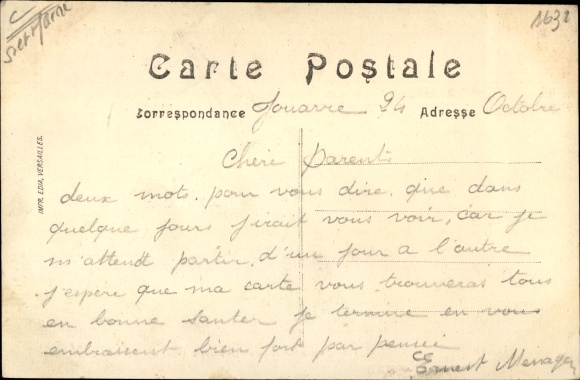 C
Set Marne
1632
Carte Postale
Correspondance Jouarre 24 Adresse Octobre
IMPR. EDIA, VERSAILLES.
Cheri Parents
deux mots pour vous dire que dans
quelque jours j'irait vous voir, car je
m'attendt partir d'un jour a l'autre
j'espère que ma carte vous trouveras tous
en bonne santer je termine en vous
embrassent bien fort par pensée
Ernest Menager